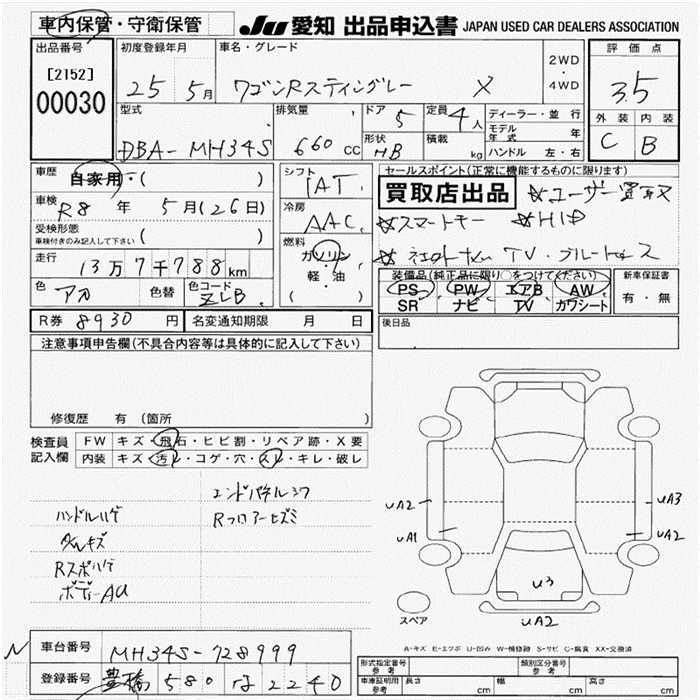 車内保管・守衛保管
JU 愛知 出品申込書 JAPAN USED CAR DEALERS ASSOCIATION
出品番号
[2152]
00030
初度登録年月
25 5月
車名・グレード
ワゴンRスティングレー X
2WD
・
4WD
評価点
3.5
外装 内装
C B
型式
DBA-MH34S
排気量
660 CC
ドア 5
定員 4人
形状 HB
積載 kg
ディーラー・並行
モデル年式 年
ハンドル 左・右
車歴
自家用・( )
車検
R8 年 5月(26日)
受検形態
車検付きのみ記入して下さい ( )
走行
13万7千788km
色 アカ 色替 色コード ZLB
シフト
IAT
冷房
AAC
燃料
ガソリン
・
軽・油
( )
セールスポイント(正常に機能するものに限ります)
買取店出品 ☆ユーザー買取
☆スマートキー ☆HID
☆社外ナビ TV・ブルートゥース
装備品(純正品に限り○をつけてください)
PS PW エアB AW
SR ナビ TV カワシート
新車保証書
有・無
後日品
R券 8930円 名変通知期限 月 日
注意事項申告欄(不具合内容等は具体的に記入して下さい)
修復歴 有 (箇所 )
検査員
記入欄
FW キズ・飛石・ヒビ割・リペア跡・X要
内装 キズ・汚レ・コゲ・穴・スレ・キレ・破レ
エンドパネルシワ
ハンドルハゲ Rフロアーヒズミ
ダッシュキズ
Rスポハゲ
ボディーAU
UA2
UA1
UA3
UA2
U3
UA2
スペア
A-キズ E-エクボ U-凹み W-補修跡 S-サビ C-腐食 XX-交換済
車台番号 MH34S-728999
登録番号 豊橋 580 な 2240
形式指定番号
参考
類別区分番号
参考
車庫証明用
参考
長さ cm 幅 cm 高さ cm